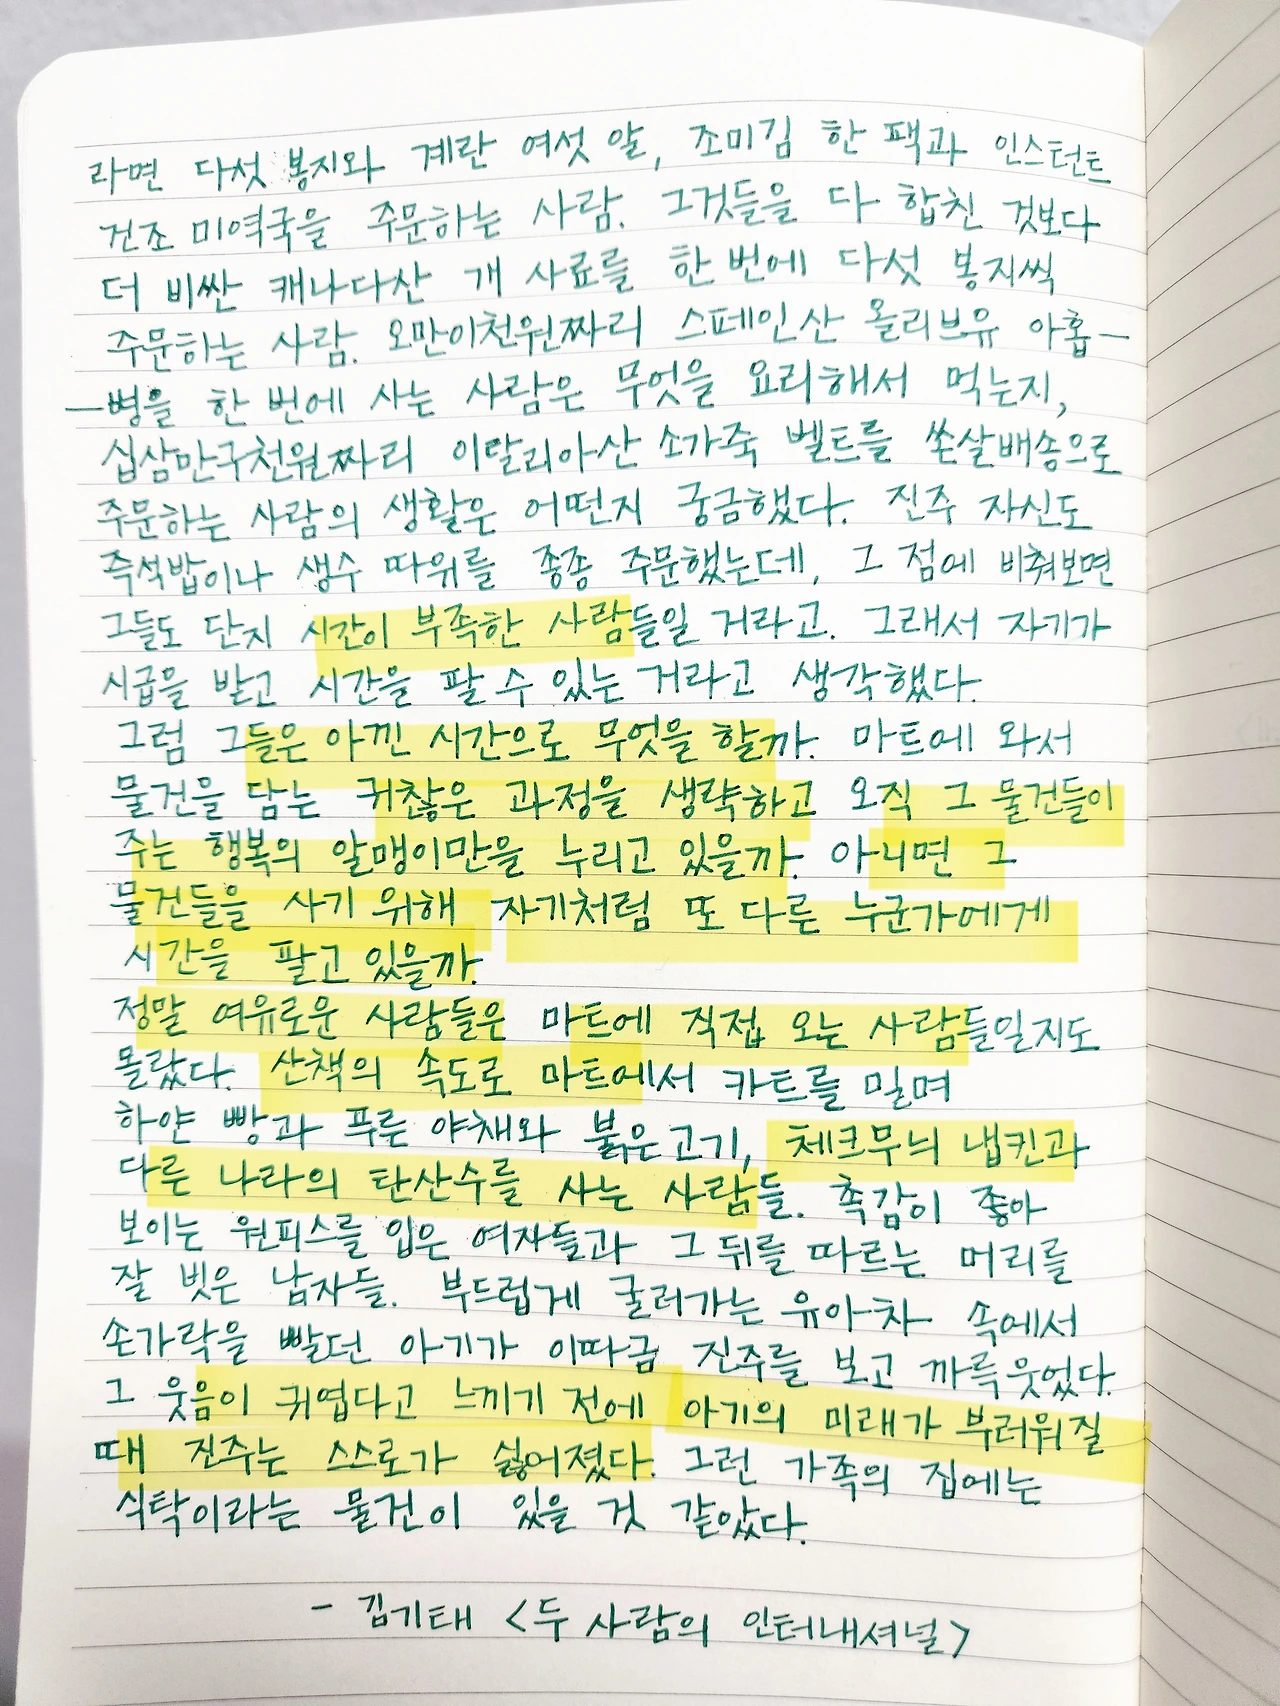 라면 다섯 봉지와 계란 여섯 알, 조미김 한 팩과 인스턴트
건조 미역국을 주문하는 사람. 그것들을 다 합친 것보다
더 비싼 캐나다산 개 사료를 한 번에 다섯 봉지씩
주문하는 사람. 오만이천원짜리 스페인산 올리브유 아홉—
—병을 한 번에 사는 사람은 무엇을 요리해서 먹는지,
십삼만구천원짜리 이탈리아산 소가죽 벨트를 쏜살배송으로
주문하는 사람의 생활은 어떤지 궁금했다. 진주 자신도
즉석밥이나 생수 따위를 종종 주문했는데, 그 점에 비춰보면
그들도 단지 시간이 부족한 사람들일 거라고. 그래서 자기가
시급을 받고 시간을 팔 수 있는 거라고 생각했다.
그럼 그들은 아낀 시간으로 무엇을 할까. 마트에 와서
물건을 담는 귀찮은 과정을 생략하고 오직 그 물건들이
주는 행복의 알맹이만을 누리고 있을까. 아니면 그
물건들을 사기 위해 자기처럼 또 다른 누군가에게
시간을 팔고 있을까.
정말 여유로운 사람들은 마트에 직접 오는 사람들일지도
몰랐다. 산책의 속도로 마트에서 카트를 밀며
하얀 빵과 푸른 야채와 붉은 고기, 체크무늬 냅킨과
다른 나라의 탄산수를 사는 사람들. 촉감이 좋아
보이는 원피스를 입은 여자들과 그 뒤를 따르는 머리를
잘 빗은 남자들. 부드럽게 굴러가는 유아차 속에서
손가락을 빨던 아기가 이따금 진주를 보고 까륵 웃었다.
그 웃음이 귀엽다고 느끼기 전에 아기의 미래가 부러워질
때 진주는 스스로가 싫어졌다. 그런 가족의 집에는
식탁이라는 물건이 있을 것 같았다.
- 김기태 <두 사람의 인터내셔널>